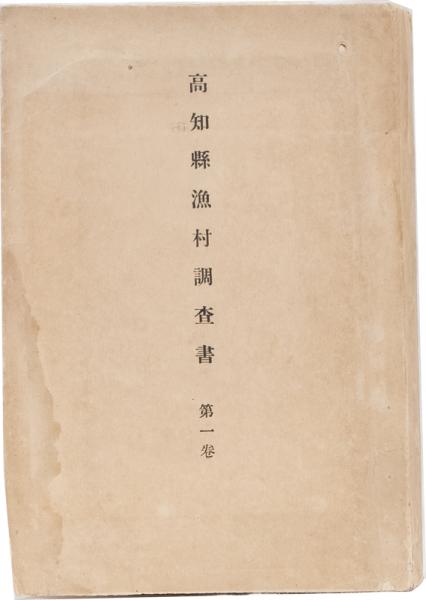 高知縣漁村調査書 第一卷